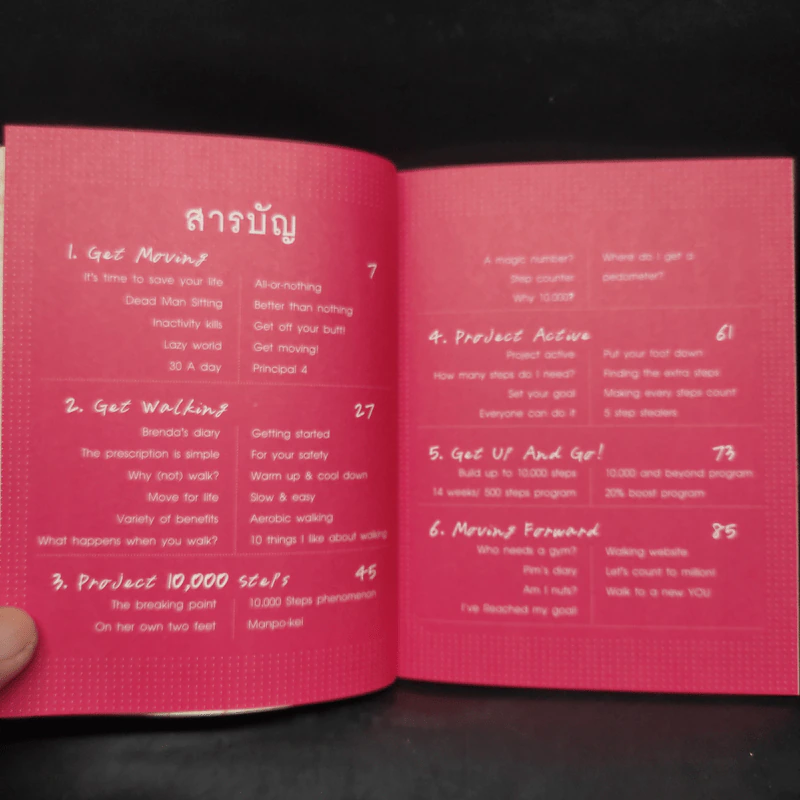 สารบัญ
1. Get Moving 7
It's time to save your life
Dead Man Sitting
Inactivity kills
Lazy world
30 A day
All-or-nothing
Better than nothing
Get off your butt!
Get moving!
Principal 4
2. Get Walking 27
Brenda's diary
The prescription is simple
Why (not) walk?
Move for life
Variety of benefits
What happens when you walk?
Getting started
For your safety
Warm up & cool down
Slow & easy
Aerobic walking
10 things I like about walking
3. Project 10,000 Steps 45
The breaking point
On her own two feet
10,000 Steps phenomenon
Manpo-kei
A magic number?
Step counter
Why 10,000?
Where do I get a
pedometer?
4. Project Active 61
Project active
How many steps do I need?
Set your goal
Everyone can do it
Put your foot down
Finding the extra steps
Making every steps count
5 step stealers
5. Get Up And Go! 73
Build up to 10,000 steps
14 weeks/ 500 steps program
10,000 and beyond program
20% boost program
6. Moving Forward 85
Who needs a gym?
Pim's diary
Am I nuts?
I've Reached my goal!
Walking website
Let's count to million!
Walk to a new YOU